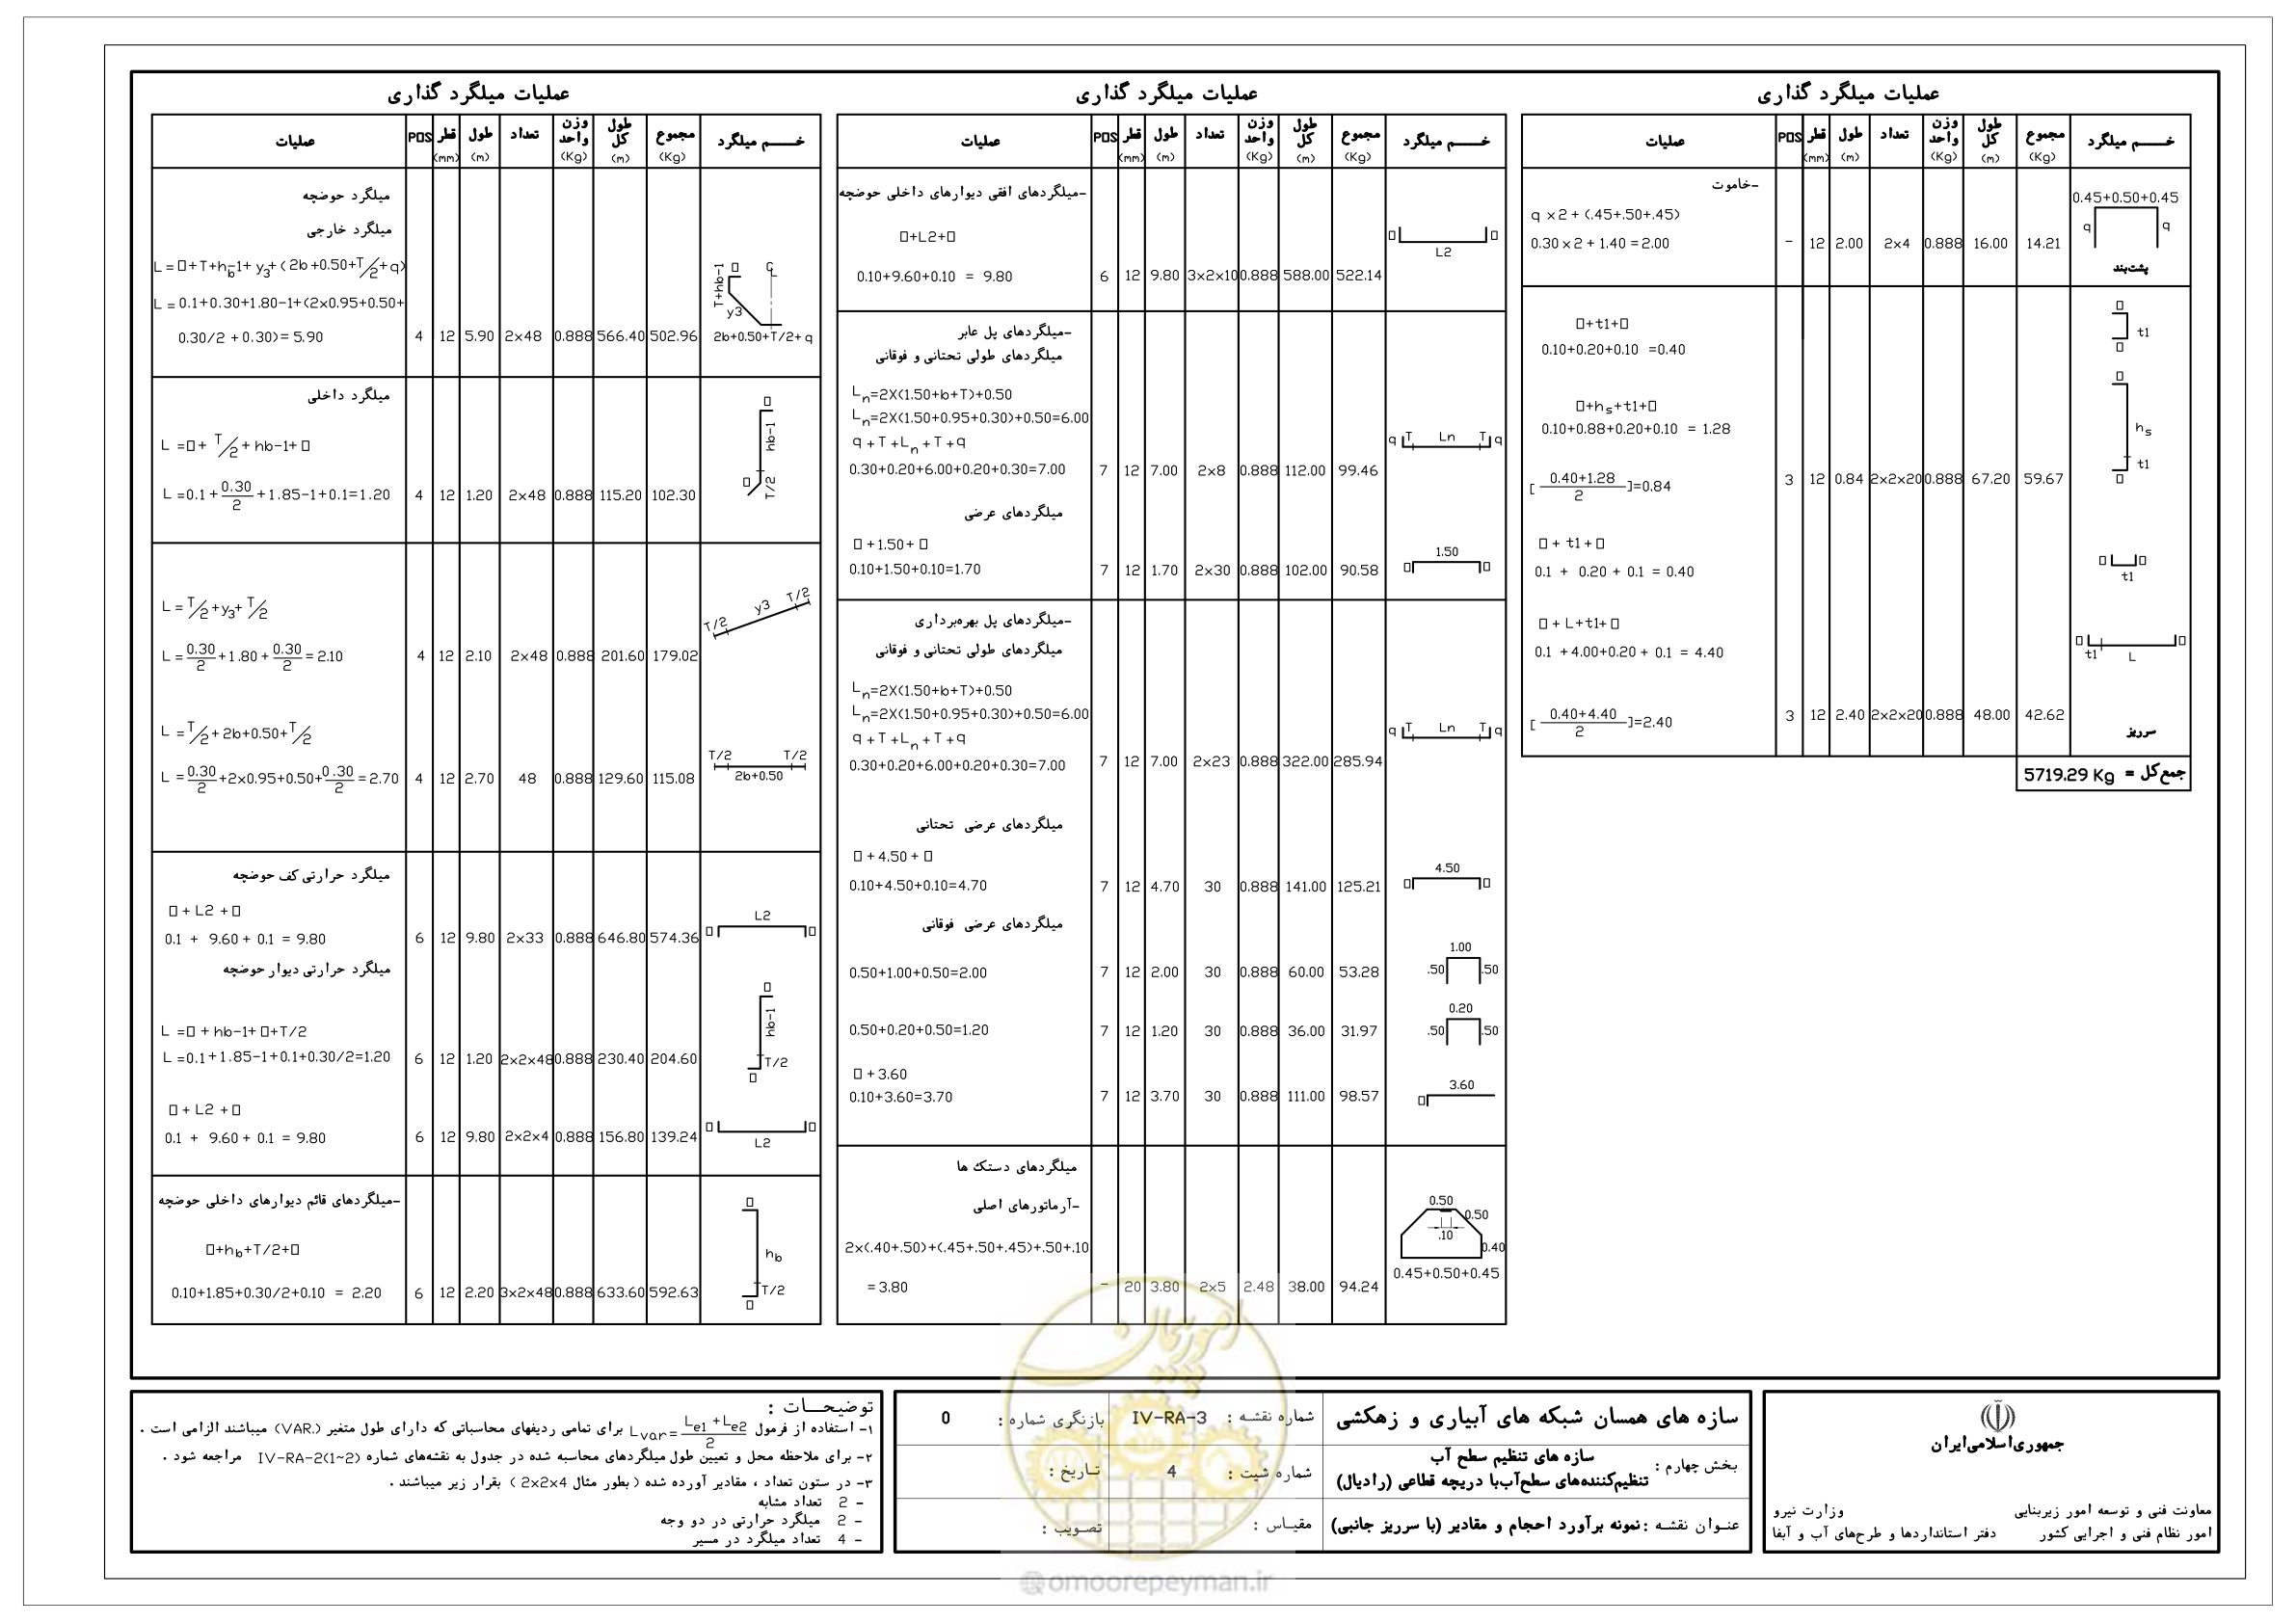 عملیات میلگرد گذاری
عملیات POS قطر (mm) طول (m) تعداد وزن واحد (Kg) طول کل (m) مجموع (Kg) خـــم میلگرد
میلگرد حوضچه
میلگرد خارجی
L = □+T+hb-1+ y3+ ( 2b+0.50+T/2+q)
L = 0.1+0.30+1.80-1+(2x0.95+0.50+
0.30/2 +0.30)= 5.90 4 12 5.90 2x48 0.888 566.40 502.96
□ T+hb-1 y3 C L 2b+0.50+T/2+q
میلگرد داخلی
L =□+ T/2 + hb-1+ □
L =0.1+ 0.30/2 +1.85-1+0.1=1.20 4 12 1.20 2x48 0.888 115.20 102.30
□ hb-1 □ T/2
L = T/2 +y3+ T/2
L = 0.30/2 +1.80 + 0.30/2 = 2.10 4 12 2.10 2x48 0.888 201.60 179.02
T/2 y3 T/2
L = T/2 + 2b+0.50+ T/2
L = 0.30/2 +2x0.95+0.50+ 0.30/2 = 2.70 4 12 2.70 48 0.888 129.60 115.08
T/2 T/2 2b+0.50
میلگرد حرارتی کف حوضچه
□ + L2 + □
0.1 + 9.60 + 0.1 = 9.80 6 12 9.80 2x33 0.888 646.80 574.36
□ L2 □
میلگرد حرارتی دیوار حوضچه
L =□ + hb-1+ □+T/2
L =0.1+1.85-1+0.1+0.30/2=1.20 6 12 1.20 2x2x48 0.888 230.40 204.60
□ hb-1 T/2 □
□ + L2 + □
0.1 + 9.60 + 0.1 = 9.80 6 12 9.80 2x2x4 0.888 156.80 139.24
□ L2 □
-میلگردهای قائم دیوارهای داخلی حوضچه
□+hb+T/2+□
0.10+1.85+0.30/2+0.10 = 2.20 6 12 2.20 3x2x48 0.888 633.60 592.63
□ hb T/2 □
عملیات میلگرد گذاری
عملیات POS قطر (mm) طول (m) تعداد وزن واحد (Kg) طول کل (m) مجموع (Kg) خـــم میلگرد
-میلگردهای افقی دیوارهای داخلی حوضچه
□+L2+□
0.10+9.60+0.10 = 9.80 6 12 9.80 3x2x10 0.888 588.00 522.14
□ L2 □
-میلگردهای پل عابر
میلگردهای طولی تحتانی و فوقانی
Ln=2X(1.50+b+T)+0.50
Ln=2X(1.50+0.95+0.30)+0.50=6.00
q +T +Ln +T +q
0.30+0.20+6.00+0.20+0.30=7.00 7 12 7.00 2x8 0.888 112.00 99.46
q T Ln T q
میلگردهای عرضی
□ + 1.50 + □
0.10+1.50+0.10=1.70 7 12 1.70 2x30 0.888 102.00 90.58
□ 1.50 □
-میلگردهای پل بهره‌برداری
میلگردهای طولی تحتانی و فوقانی
Ln=2X(1.50+b+T)+0.50
Ln=2X(1.50+0.95+0.30)+0.50=6.00
q +T +Ln +T +q
0.30+0.20+6.00+0.20+0.30=7.00 7 12 7.00 2x23 0.888 322.00 285.94
q T Ln T q
میلگردهای عرضی تحتانی
□ + 4.50 + □
0.10+4.50+0.10=4.70 7 12 4.70 30 0.888 141.00 125.21
□ 4.50 □
میلگردهای عرضی فوقانی
0.50+1.00+0.50=2.00 7 12 2.00 30 0.888 60.00 53.28
.50 1.00 .50
0.50+0.20+0.50=1.20 7 12 1.20 30 0.888 36.00 31.97
.50 0.20 .50
□ + 3.60
0.10+3.60=3.70 7 12 3.70 30 0.888 111.00 98.57
□ 3.60
میلگردهای دستک ها
-آرماتورهای اصلی
2x(.40+.50)+(.45+.50+.45)+.50+.10
= 3.80 - 20 3.80 2x5 2.48 38.00 94.24
0.50 0.50 .10 0.40 0.45+0.50+0.45
عملیات میلگرد گذاری
عملیات POS قطر (mm) طول (m) تعداد وزن واحد (Kg) طول کل (m) مجموع (Kg) خـــم میلگرد
-خاموت
q x2 + (.45+.50+.45)
0.30 x2 + 1.40 = 2.00 - 12 2.00 2x4 0.888 16.00 14.21
0.45+0.50+0.45 q q
پشت‌بند
□+t1+□
0.10+0.20+0.10 =0.40
□ t1 □
□+hs+t1+□
0.10+0.88+0.20+0.10 = 1.28
[ 0.40+1.28 / 2 ]=0.84 3 12 0.84 2x2x20 0.888 67.20 59.67
□ hs t1 □
□ + t1 + □
0.1 + 0.20 + 0.1 = 0.40
□ t1 □
□ + L+t1+ □
0.1 +4.00+0.20 + 0.1 = 4.40
□ t1 L □
[ 0.40+4.40 / 2 ]=2.40 3 12 2.40 2x2x20 0.888 48.00 42.62
سرریز
جمع کل = 5719.29 Kg
توضیحـــات :
۱- استفاده از فرمول Lvar= Le1 +Le2 / 2 برای تمامی ردیفهای محاسباتی که دارای طول متغیر (VAR.) میباشند الزامی است .
۲- برای ملاحظه محل و تعیین طول میلگردهای محاسبه شده در جدول به نقشه‌های شماره IV-RA-2(1~2) مراجعه شود .
۳- در ستون تعداد ، مقادیر آورده شده ( بطور مثال 2x2x4 ) بقرار زیر میباشند .
- 2 تعداد مشابه
- 2 میلگرد حرارتی در دو وجه
- 4 تعداد میلگرد در مسیر
سازه های همسان شبکه های آبیاری و زهکشی
شماره نقشـه : IV-RA-3
بازنگری شماره : 0
بخش چهارم : سازه های تنظیم سطح آب
تنظیم‌کننده‌های سطح‌آب‌با دریچه قطاعی (رادیال)
شماره شیت : 4
تـاریخ :
عنـوان نقشـه : نمونه برآورد احجام و مقادیر (با سرریز جانبی)
مقیـاس :
تصـویب :
جمهوری‌اسلامی‌ایران
معاونت فنی و توسعه امور زیربنایی وزارت نیرو
امور نظام فنی و اجرایی کشور دفتر استانداردها و طرح‌های آب و آبفا
امور پیمان
@omoorepeyman.ir